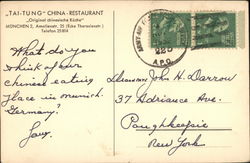 „TAI-TUNG" CHINA-RESTAURANT
„Original chinesische Küche"
MÜNCHEN 2, Amalienstr. 25 (Ecke Theresienstr.)
Telefon 25814
A.P.O.
What do you
think of our
Chinese eating
place in Munich
Germany?
John H. Darrow
37 Adriance Ave.
Poughkeepsie
New York